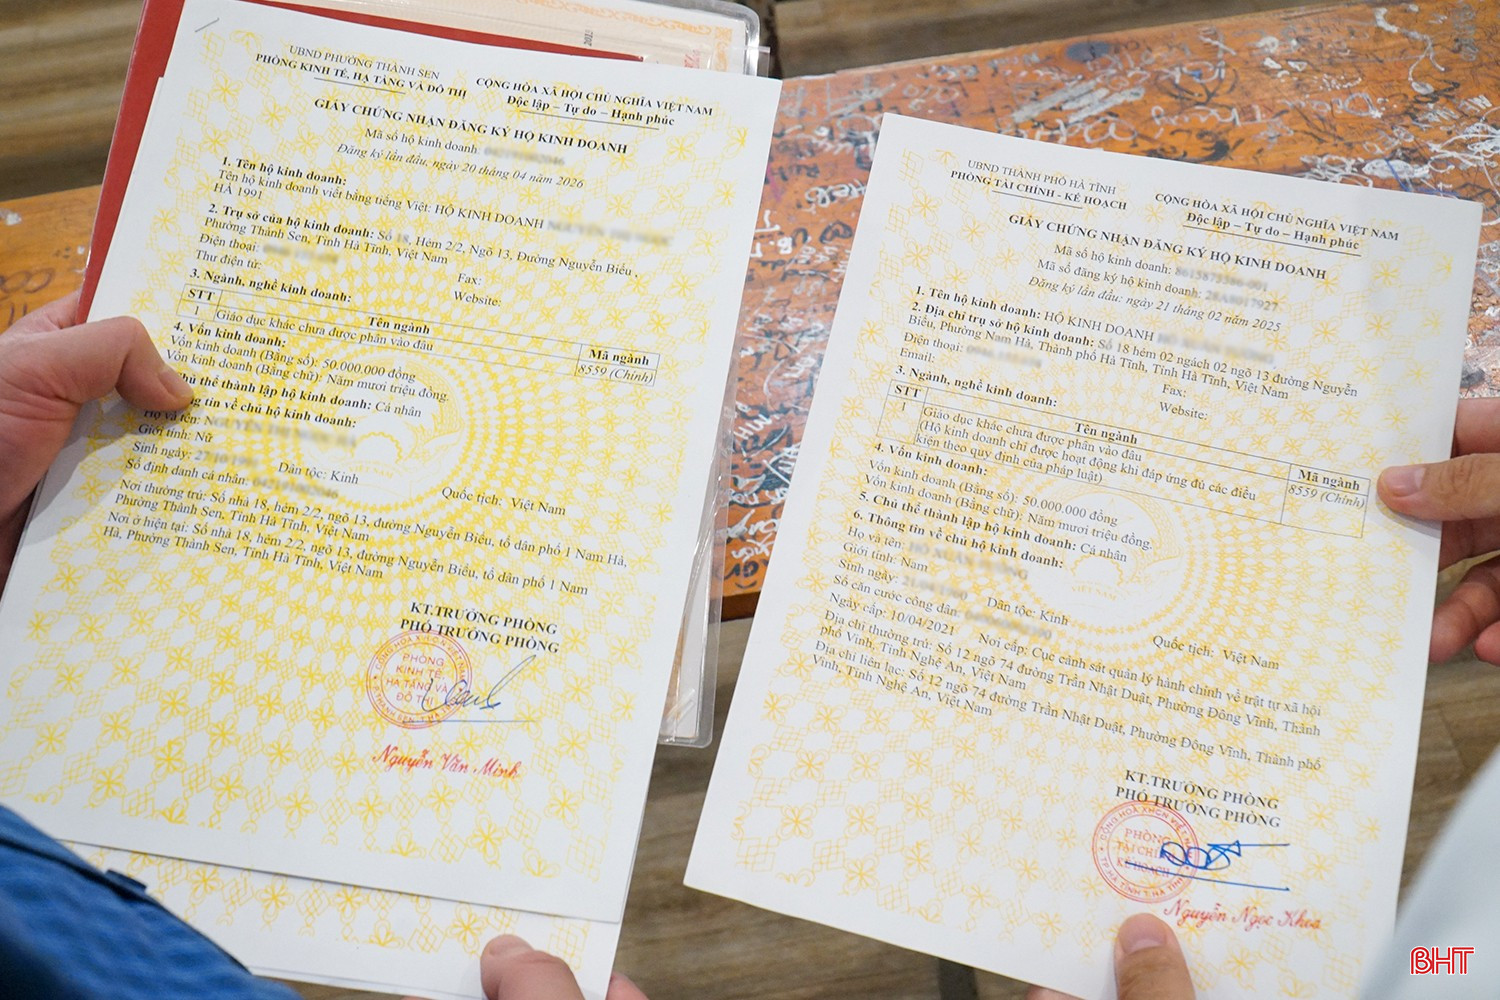 UBND PHƯỜNG THÀNH SEN
PHÒNG KINH TẾ, HẠ TẦNG VÀ ĐÔ THỊ
CỘNG HÒA XÃ HỘI CHỦ NGHĨA VIỆT NAM
Độc lập – Tự do – Hạnh phúc
GIẤY CHỨNG NHẬN ĐĂNG KÝ HỘ KINH DOANH
Mã số hộ kinh doanh:
Đăng ký lần đầu, ngày 20 tháng 04 năm 2026
1. Tên hộ kinh doanh:
Tên hộ kinh doanh viết bằng tiếng Việt: HỘ KINH DOANH
HÀ 1991
2. Trụ sở của hộ kinh doanh: Số 18, Hẻm 2/2, Ngõ 13, Đường Nguyễn Biểu ,
Phường Thành Sen, Tỉnh Hà Tĩnh, Việt Nam
Điện thoại: Fax:
Thư điện tử: Website:
3. Ngành, nghề kinh doanh:
STT Tên ngành Mã ngành
1 Giáo dục khác chưa được phân vào đâu 8559 (Chính)
4. Vốn kinh doanh:
Vốn kinh doanh (Bằng số): 50.000.000 đồng
Vốn kinh doanh (Bằng chữ): Năm mươi triệu đồng.
Chủ thể thành lập hộ kinh doanh: Cá nhân
tin về chủ hộ kinh doanh:
Họ và tên:
Giới tính: Nữ
Sinh ngày: Dân tộc: Kinh Quốc tịch: Việt Nam
Số định danh cá nhân:
Nơi thường trú: Số nhà 18, hẻm 2/2, ngõ 13, đường Nguyễn Biểu, tổ dân phố 1 Nam Hà,
Phường Thành Sen, Tỉnh Hà Tĩnh, Việt Nam
Nơi ở hiện tại: Số nhà 18, hẻm 2/2, ngõ 13, đường Nguyễn Biểu, tổ dân phố 1 Nam
Hà, Phường Thành Sen, Tỉnh Hà Tĩnh, Việt Nam
KT.TRƯỞNG PHÒNG
PHÓ TRƯỞNG PHÒNG
PHÒNG
KINH TẾ,
HẠ TẦNG VÀ
ĐÔ THỊ
Nguyễn Văn Minh
UBND THÀNH PHỐ HÀ TĨNH
PHÒNG TÀI CHÍNH - KẾ HOẠCH
CỘNG HÒA XÃ HỘI CHỦ NGHĨA VIỆT NAM
Độc lập - Tự do - Hạnh phúc
GIẤY CHỨNG NHẬN ĐĂNG KÝ HỘ KINH DOANH
Mã số hộ kinh doanh:
Mã số đăng ký hộ kinh doanh:
Đăng ký lần đầu: ngày 21 tháng 02 năm 2025
1. Tên hộ kinh doanh: HỘ KINH DOANH
2. Địa chỉ trụ sở hộ kinh doanh: Số 18 hẻm 02 ngách 02 ngõ 13 đường Nguyễn
Biểu, Phường Nam Hà, Thành phố Hà Tĩnh, Tỉnh Hà Tĩnh, Việt Nam
Điện thoại: Fax:
Email: Website:
3. Ngành, nghề kinh doanh:
STT Tên ngành Mã ngành
1 Giáo dục khác chưa được phân vào đâu 8559 (Chính)
(Hộ kinh doanh chỉ được hoạt động khi đáp ứng đủ các điều
kiện theo quy định của pháp luật)
4. Vốn kinh doanh:
Vốn kinh doanh (Bằng số): 50.000.000 đồng
Vốn kinh doanh (Bằng chữ): Năm mươi triệu đồng.
5. Chủ thể thành lập hộ kinh doanh: Cá nhân
6. Thông tin về chủ hộ kinh doanh:
Họ và tên:
Giới tính: Nam
Sinh ngày: Dân tộc: Kinh Quốc tịch: Việt Nam
Số căn cước công dân:
Ngày cấp: 10/04/2021 Nơi cấp: Cục cảnh sát quản lý hành chính về trật tự xã hội
Địa chỉ thường trú: Số 12 ngõ 74 đường Trần Nhật Duật, Phường Đông Vĩnh, Thành
phố Vinh, Tỉnh Nghệ An, Việt Nam
Địa chỉ liên lạc: Số 12 ngõ 74 đường Trần Nhật Duật, Phường Đông Vĩnh, Thành phố
Vinh, Tỉnh Nghệ An, Việt Nam
KT.TRƯỞNG PHÒNG
PHÓ TRƯỞNG PHÒNG
PHÒNG
TÀI CHÍ
KẾ HOẠCH
Nguyễn Ngọc Khoa
BHT